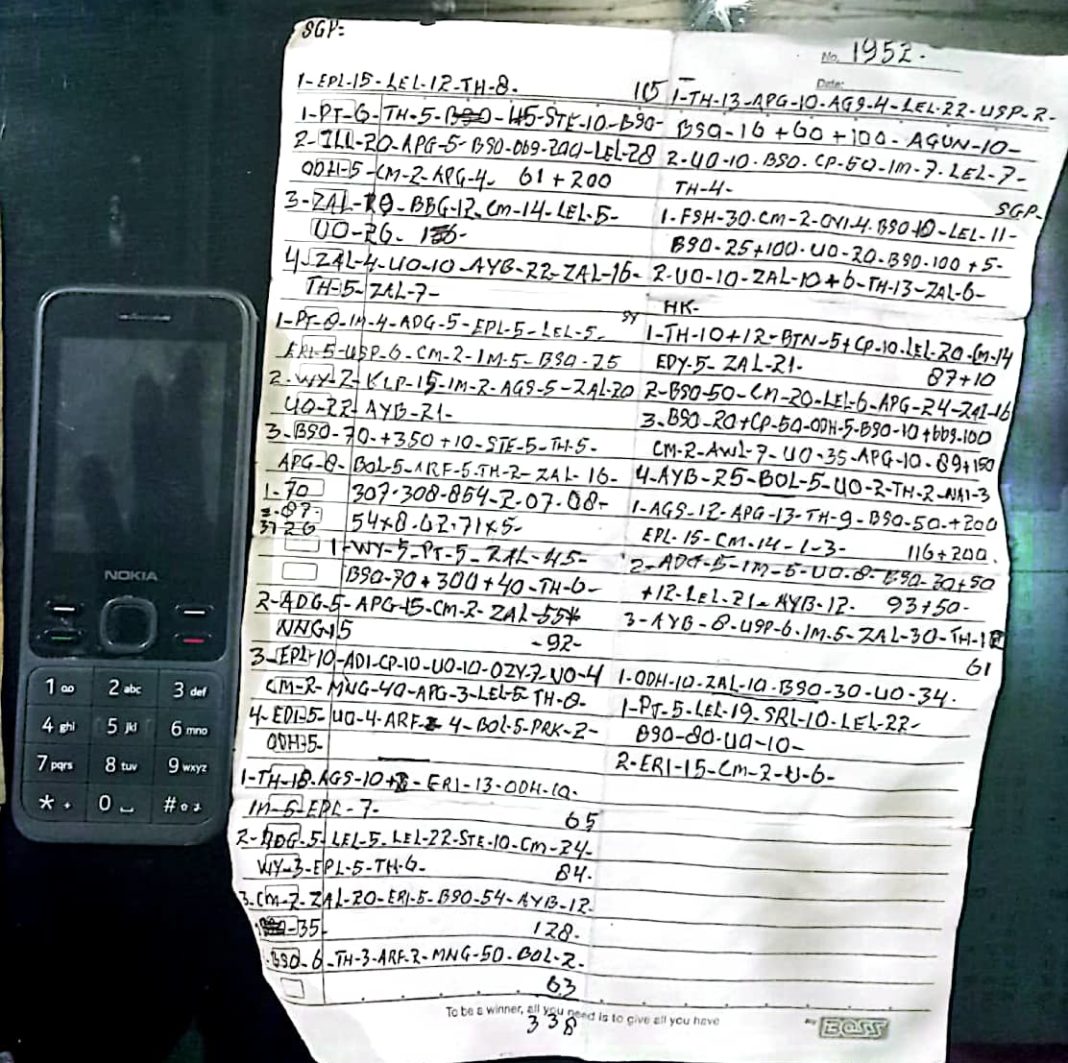 SGP=
No. 1952.
Date:
1-EPL-15-LEL-12-TH-8.
1-PT-6-TH-5- 45-STE-10-BSO- 115
2-ILL-20-APG-5-BSO-069-200-LEL-28
ODH-5-CM-2-APG-4- 61+200
3-ZAL-10-BBG-12-CM-14-LEL-5-
UO-26-
4-ZAL-4-UO-10-AYB-22-ZAL-16-
TH-15-ZAL-7-
1-PT-8-IM-4-ADG-5-EPL-5-LEL-5-
ERI-5-USP-6-CM-2-IM-5-BSO-25
2-WY-2-KLP-15-IM-2-AGS-5-ZAL-20
UO-22-AYB-21-
3-BSO-70-+350+10-STE-5-TH-5-
APG-8-BOL-5-ARF-5-TH-2-ZAL-16-
1-70 307-308-854-2-07-08-
2-87- 54x8-02-71x5-
3726
1-WY-5-PT-5-ZAL-45-
BSO-70+300+40-TH-6-
2-ADG-5-APG-15-CM-2-ZAL-55
NNG-15 -92-
3-EPL-10-ADI-CP-10-UO-10-OZY-2-UO-4
CM-2-MNG-40-APG-3-LEL-5-TH-8-
4-EDI-5-UO-4-ARF- 4-BOL-5-PRK-2-
ODH-5-
1-TH-18-AGS-10+ -ERI-13-ODH-10-
IM-5-EPL-7- 65
2-ADG-5-LEL-5-LEL-22-STE-10-CM-24-
WY-3-EPL-5-TH-6- 84-
3-CM-2-ZAL-20-ERI-5-BSO-54-AYB-12-
-35- 128-
BSO-6-TH-3-ARF-2-MNG-50-BOL-2-
63
1-TH-13-APG-10-AGS-4-LEL-22-USP-2-
BSO-16+60+100-AGUN-10-
2-UO-10-BSO-CP-50-IM-7-LEL-7-
TH-4-
SGP-
1-FSH-30-CM-2-OVI-4-BSO-10-LEL-11-
BSO-25+100-UO-20-BSO-100+5-
2-UO-10-ZAL-10+6-TH-13-ZAL-6-
HK-
SY
1-TH-10+12-BTN-5+CP-10-LEL-20-CM-14
EDY-5-ZAL-21- 87+10
2-BSO-50-CM-20-LEL-6-APG-24-ZAL-16
3-BSO-20+CP-50-ODH-5-BSO-10+669-100
CM-2-AWL-7-UO-35-APG-10-89+150
4-AYB-25-BOL-5-UO-2-TH-2-NAI-3
1-AGS-12-APG-13-TH-9-BSO-50-+200
EPL-15-CM-14-L-3- 116+200.
2-ADG-5-IM-5-UO-8-BSO-30+50
+12-LEL-21-AYB-12- 93+50-
3-AYB-8-USP-6-IM-5-ZAL-30-TH-
61
1-ODH-10-ZAL-10-BSO-30-UO-34.
1-PT-5-LEL-19-SRL-10-LEL-22-
BSO-80-UO-10-
2-ERI-15-CM-2-U-6-
To be a winner, all you need is to give all you have
338
BOSS
NOKIA
1
2 abc
3 def
4 ghi
5 jkl
6 mno
7 pqrs
8 tuv
9 wxyz
* +
0
#